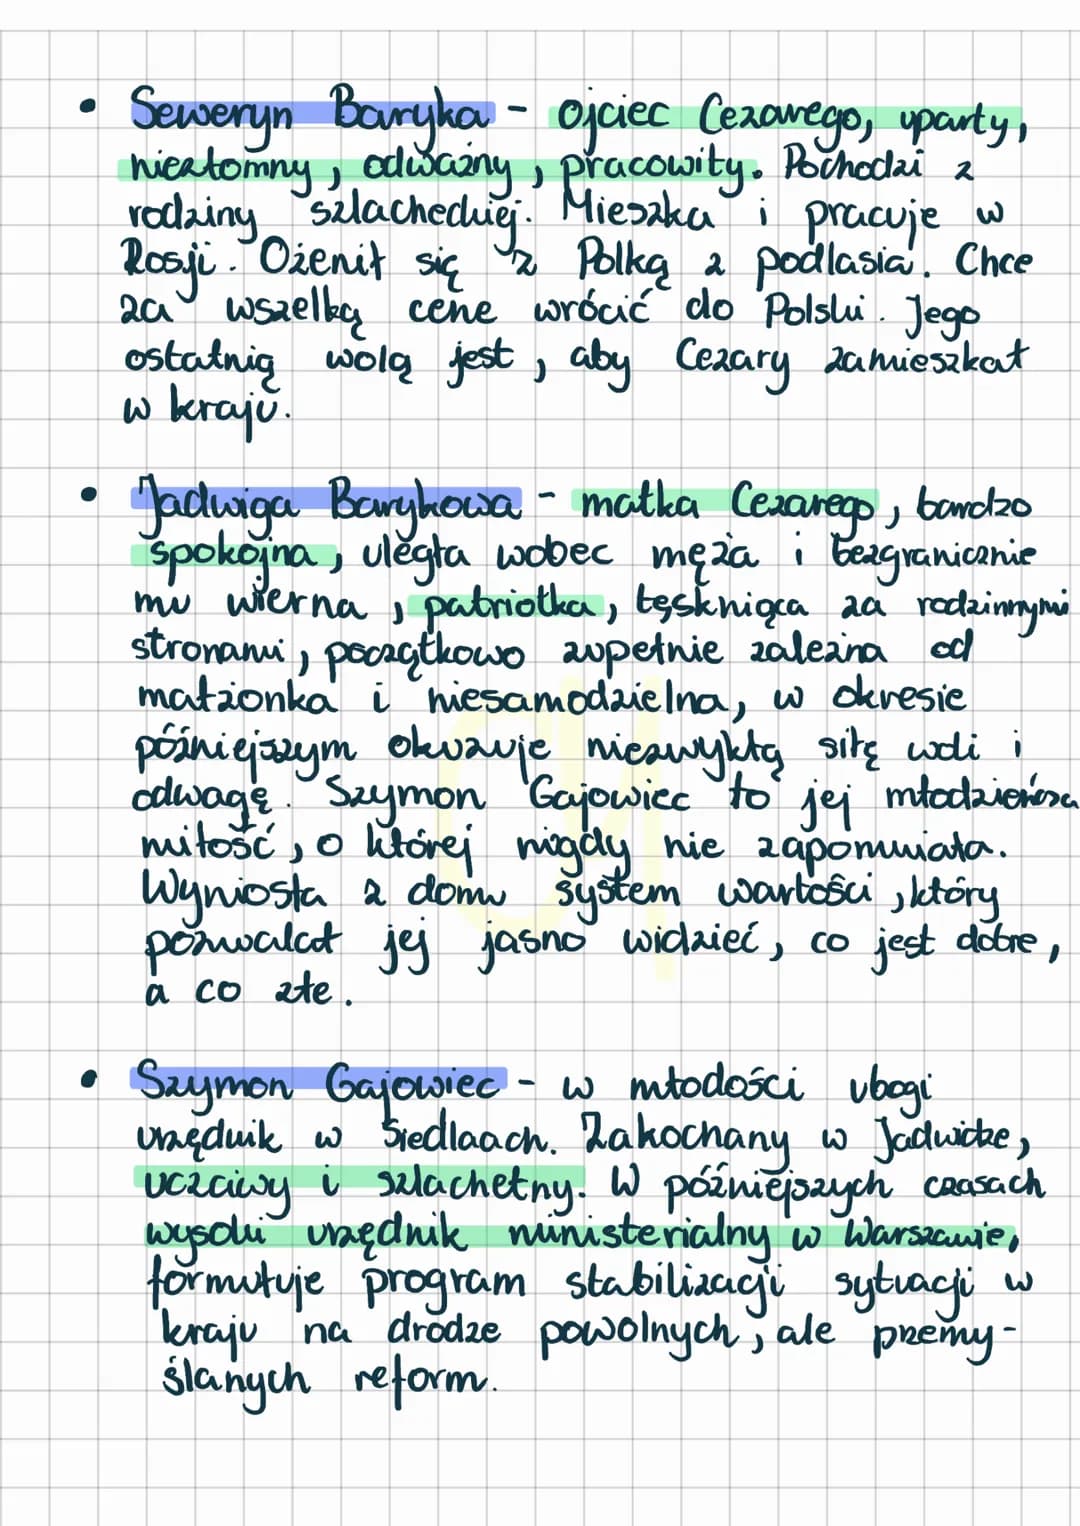 • Seweryn Baryka - ojciec Cezarego, uparty,
niezłomny, odważny, pracowity. Pochodzi z
rodziny szlacheckiej. Mieszka i pracuje w
Rosji. Ożenił się z Polką z podlasia. Chce
za wszelką cene wrócić do Polski. Jego
ostatnią wolą jest, aby Cezary zamieszkał
w kraju.
• Jadwiga Barykowa - matka Cezarego, bardzo
spokojna, uległa wobec męża i bezgranicznie
mu wierna, patriotka, tęskniąca za rodzinnymi
stronami, początkowo zupełnie zależna od
małżonka i niesamodzielna, w okresie
późniejszym okazuje niezwykłą siłę woli i
odwagę. Szymon Gajowiec to jej młodzieńcza
miłość, o której nigdy nie zapomniała.
Wyniosła z domu system wartości, który
pozwalał jej jasno widzieć, co jest dobre,
a co złe.
• Szymon Gajowiec - w młodości ubogi
urzędnik w Siedlcach. Zakochany w Jadwidze,
uczciwy i szlachetny. W późniejszych czasach
wysoki urzędnik ministerialny w Warszawie,
formułuje program stabilizacji sytuacji w
kraju na drodze powolnych, ale przemy-
ślanych reform.
CM